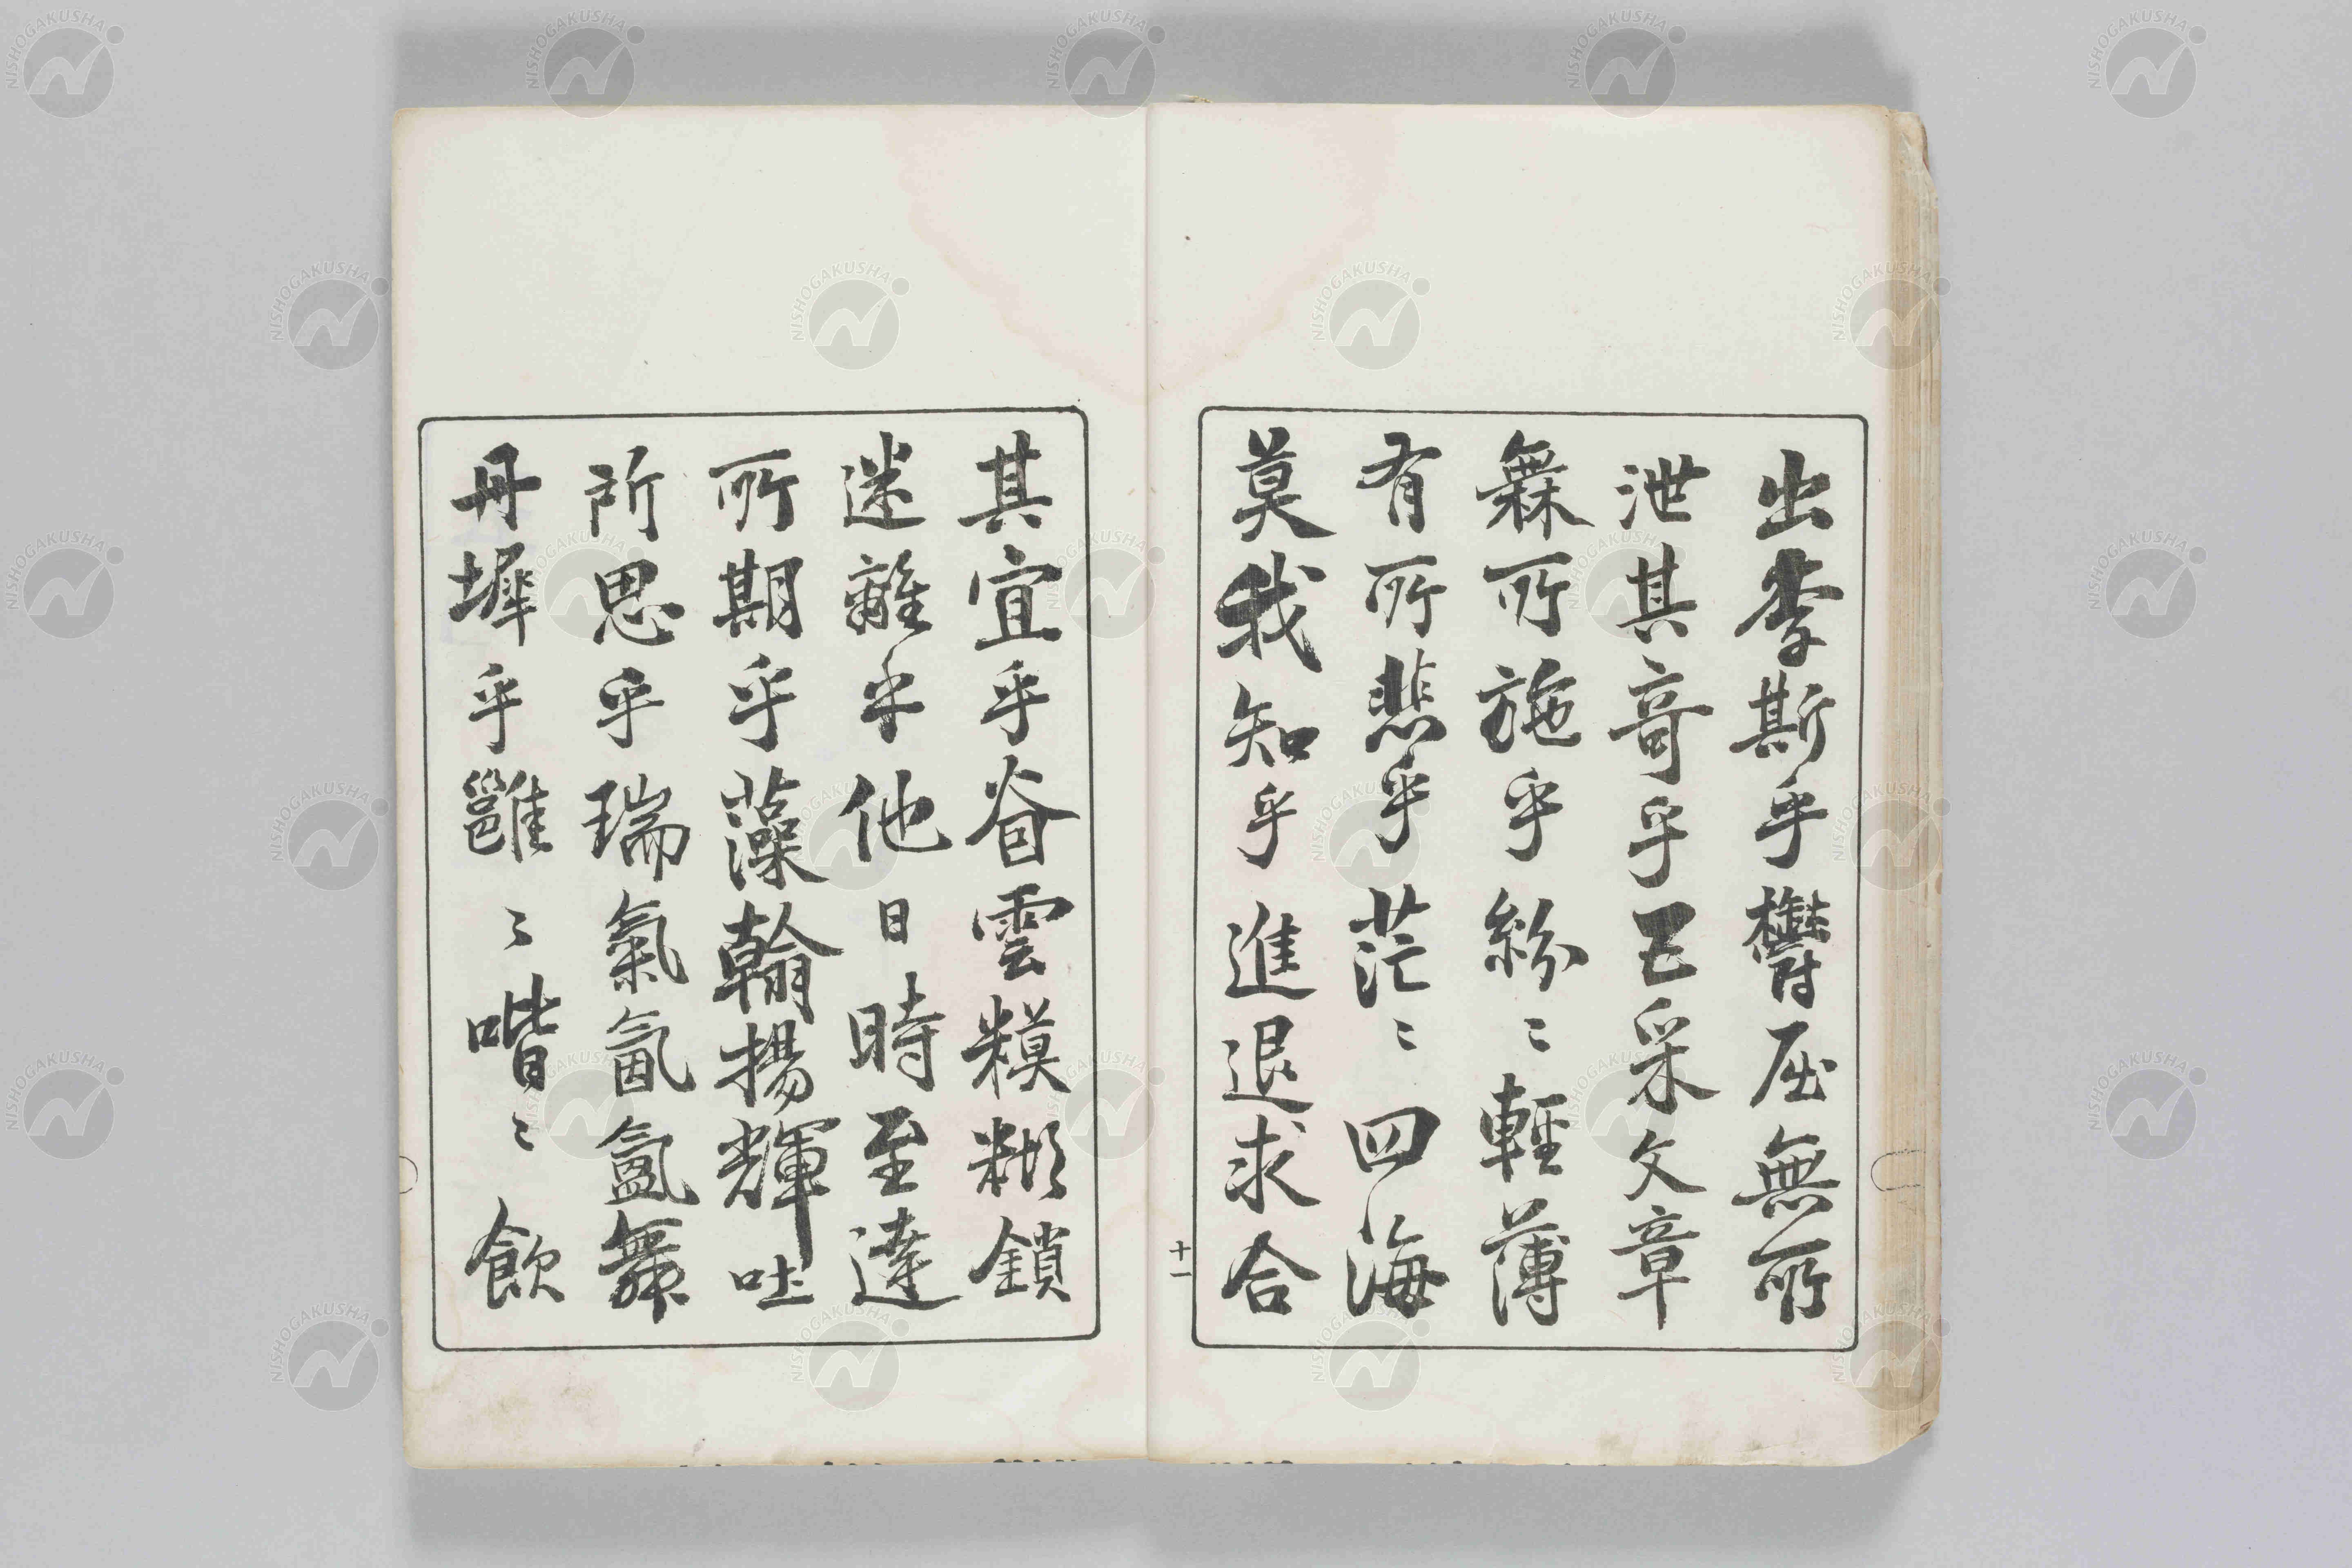 出李斯乎欝屈無所
泄其奇乎五采文章
無所施乎紛〻輕薄
有所悲乎茫〻四海
莫我知乎進退求合
十一
其宜乎昚雲糢糊鎖
迷離乎他日時至達
所期乎藻翰揚輝吐
所思乎瑞氣氤氳舞
丹墀乎雝〻喈〻飲
NISHOGAKUSHA